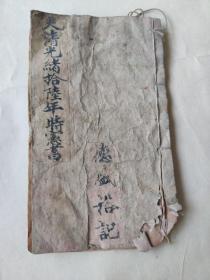 大清光緒拾陸年時憲書
應盛裕記